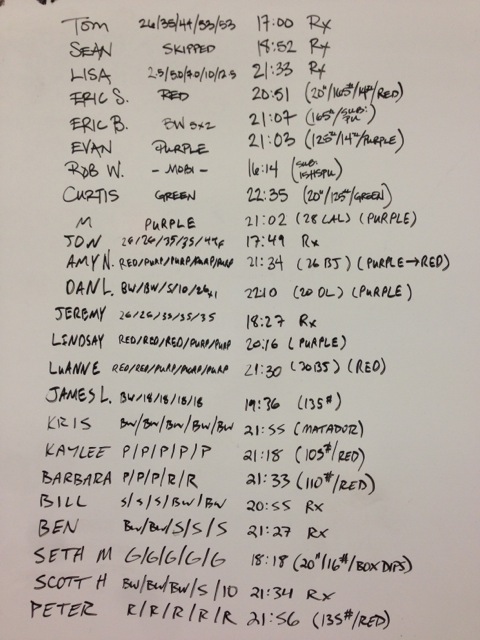 TOM 26/35/44/53/53 17:00 Rx
SEAN SKIPPED 18:52 Rx
LISA 2.5/5.0/7.0/10/12.5 21:33 Rx
ERIC S. RED 20:51 (20"/165#/14#/RED)
ERIC B. BW 5x2 21:07 (165#/SUB: PU)
EVAN PURPLE 21:03 (125#/14#/PURPLE)
ROB W. - MOBI - 16:14 (SUB: 15HSPU)
CURTIS GREEN 22:35 (20"/125#/GREEN)
M PURPLE 21:02 (28 CAL) (PURPLE)
JON 26/26/35/35/44 17:49 Rx
AMY N. RED/PURP/PURP/PURP/PURP 21:34 (26 BJ) (PURPLE→RED)
DAN L. BW/BW/5/10/26x1 22:10 (20 OL) (PURPLE)
JEREMY 26/26/35/35/35 18:27 Rx
LINDSAY RED/RED/RED/PURP/PURP 20:16 (PURPLE)
LUANNE RED/RED/PURP/PURP/PURP 21:30 (20BJ) (RED)
JAMES L. BW/18/18/18/18 19:36 (135#)
KRIS BW/BW/BW/BW/BW 21:55 (MATADOR)
KAYLEE P/P/P/P/P 21:18 (105#/RED)
BARBARA P/P/P/R/R 21:33 (110#/RED)
BILL S/S/S/BW/BW 20:55 Rx
BEN BW/BW/S/S/S 21:27 Rx
SETH M G/G/G/G/G 18:18 (20"/16#/BOX DIPS)
SCOTT H BW/BW/BW/5/10 21:34 Rx
PETER R/R/R/R/R 21:56 (135#/RED)